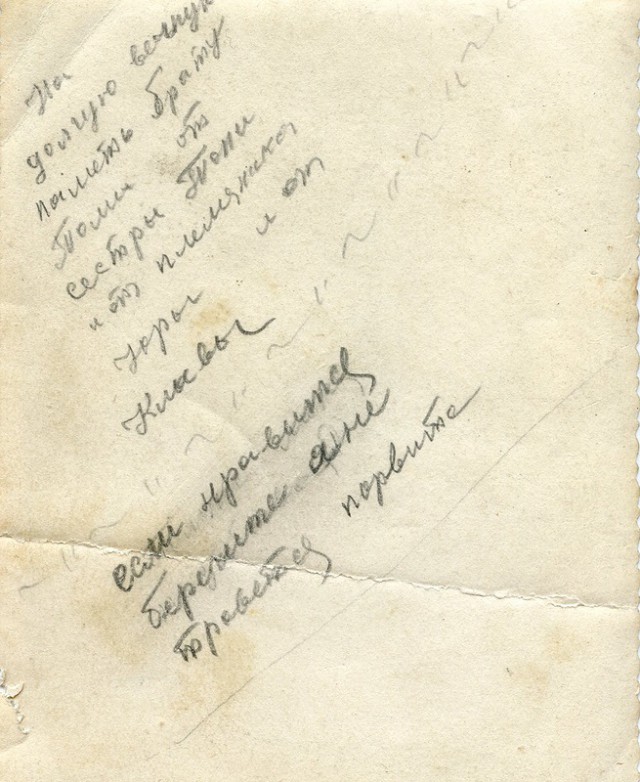 На
долгую вечную
паметь брату
Толи от
сестры Тони
и от племянника
Юры и от
Клавы
если нравится
берегите а не
нравется порвите